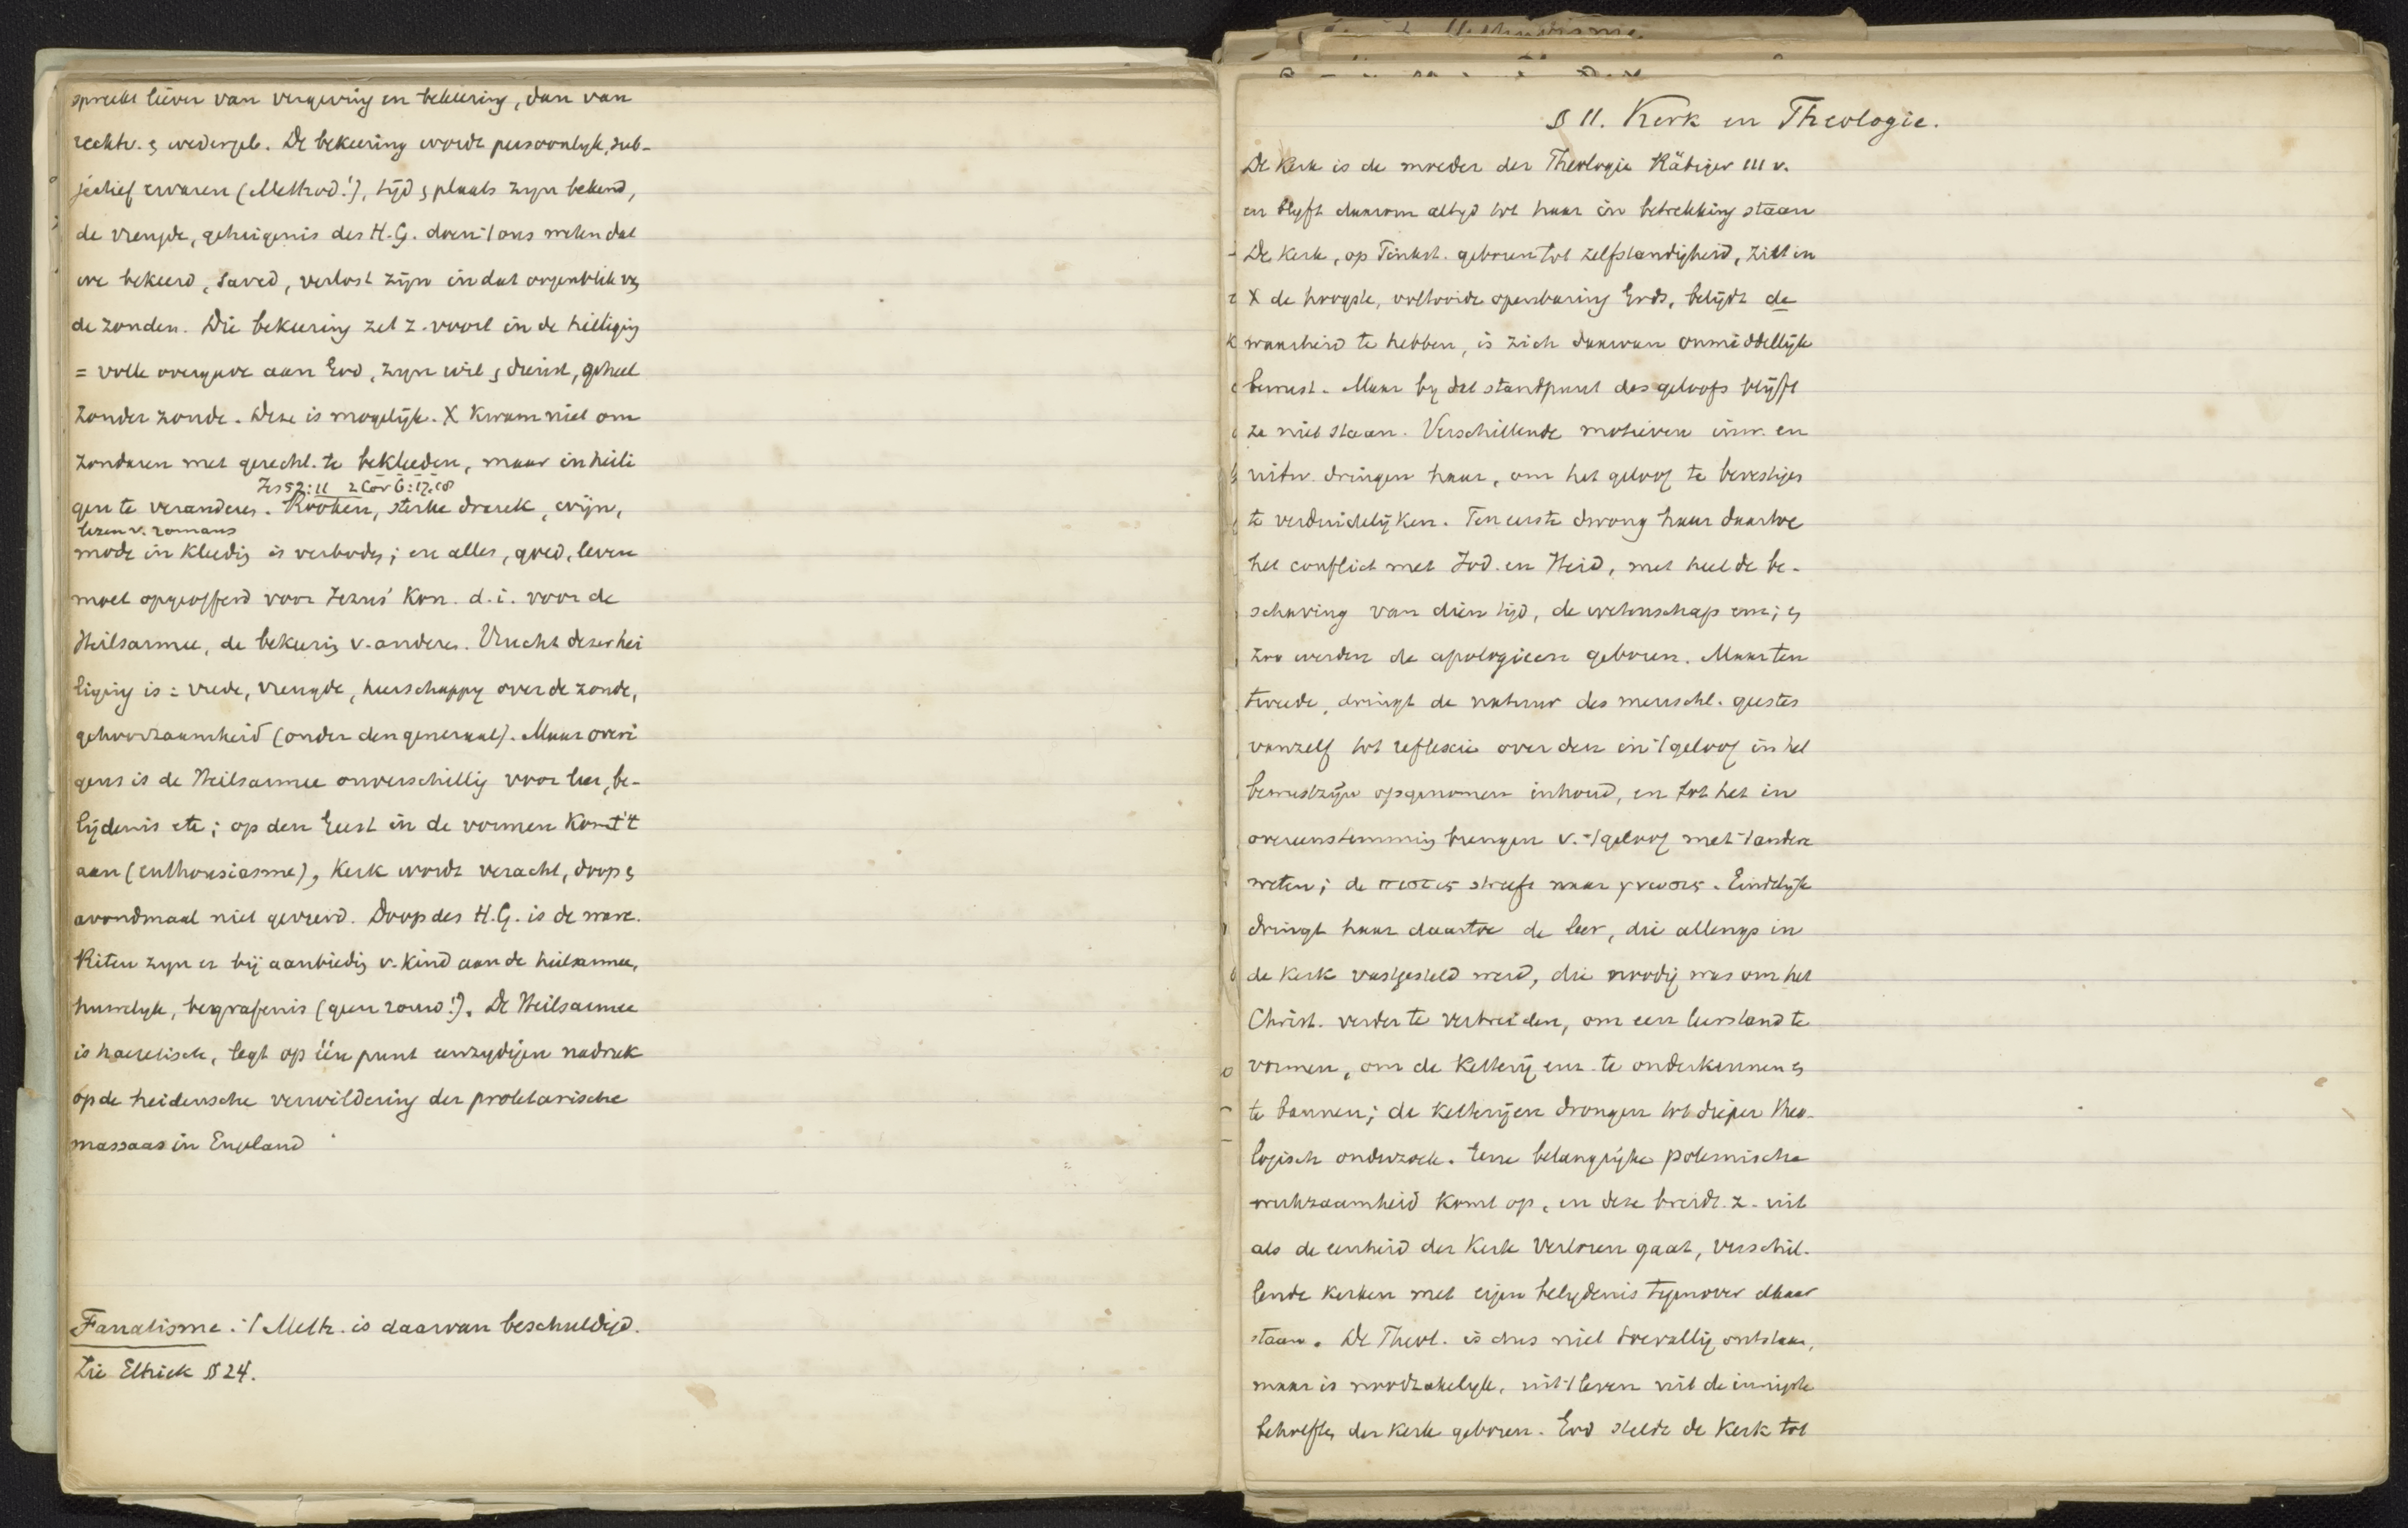 spreekt liever van vergeving en bekeering, dan van
rechtv. & wedergeb. De bekeering wordt persoonlyk, sub-
jectief ervaren (Method!), tijd & plaats zyn bekend,
de vreugde, getuigenis des H.G. doen 't ons weten dat
we bekeerd, saved, verlost zijn in dat oogenblik v.
de zonden. Die bekeering zet z. voort in de heiliging
= volle overgave aan God, zijn wil & dienst, geheel
zonder zonde. Deze is mogelijk. X kwam niet om
zondaren met gerecht. te bekleeden, maar in heili
Jes 52:11 2 Cor 6:17.18
gen te veranderen. Rooken, sterke drank, wijn,
lezen v. romans
mode in kleeding is verboden; en alles, goed, leven
moet opgeofferd voor Jezus' Kon. d.i. voor de
Heilsarmee, de bekeering v. anderen. Vrucht dezer hei
liging is = vrede, vreugde, heerschappy over de zonde,
gehoorzaamheid (onder den generaal). Maar overi
gens is de Heilsarmee onverschillig voor leer, be-
lijdenis etc; op den Geest in de vormen komt 't
aan (enthousiasme), Kerk wordt veracht, doop &
avondmaal niet gevierd. Doop des H.G. is de ware.
Riten zyn er bij aanbieding v. kind aan de heilsarmee,
huwelyk, begrafenis (geen rouw!). De Heilsarmee
is haeretisch, legt op één punt eenzydigen nadruk
op de heidensche verwildering der proletarische
massaas in Engeland
Fanatisme. 't Meth. is daarvan beschuldigd.
Zie Eltrick § 24.
§ 11. Kerk en Theologie.
De Kerk is de moeder der Theologie Räbiger 111 v.
en blyft daarom altyd tot haar in betrekking staan
De Kerk, op Pinkst. geboren tot zelfstandigheid, ziet in
X de hoogste, voltooide openbaring Gods, belijdt de
waarheid te hebben, is zich daarvan onmiddellijk
bewust. Maar by dat standpunt des geloofs blijft
ze niet staan. Verschillende motieven inw. en
uitw. dringen haar, om het geloof te bevestigen
te verduidelijken. Ten eerste dwong haar daartoe
het conflict met Jod. en Heid, met heel de be-
schaving van dien tijd, de wetenschap enz; &
zoo werden de apologieen geboren. Maar ten
tweede, dringt de natuur des menschl. geestes
vanzelf tot reflexie over den in 't geloof in het
bewustzijn opgenomen inhoud, en tot het in
overeenstemming brengen v. 't geloof met 't andere
weten; de πιστις streeft naar γνωσις. Eindelijk
dringt haar daartoe de leer, die allengs in
de Kerk vastgesteld werd, die noodig was om het
Christ. verder te verbreiden, om een leerstand te
vormen, om de Ketterij enz. te onderkennen &
te bannen; de Ketterijen drongen tot dieper theo-
logisch onderzoek. Eene belangrijke polemische
werkzaamheid komt op, en deze breidt z. uit
als de eenheid der Kerk verloren gaat, verschil-
lende Kerken met eigen belydenis tegenover elkaar
staan. De Theol. is dus niet toevallig ontstaan,
maar is noodzakelyk, uit 't leven uit de innigste
behoefte der Kerk geboren. God stelde de Kerk tot